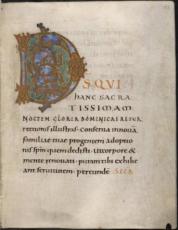 DS QUI
HANC SACRA
TISSIMAM
NOCTEM GLORIA DOMINICAE RESUR
rectionis illustras · Conserua innoua
familiae tuae progeniem adoptio
nis spm quem dedisti · Ut corpore &
mente renouati · puram tibi exhibe
ant seruitutem · per eunde